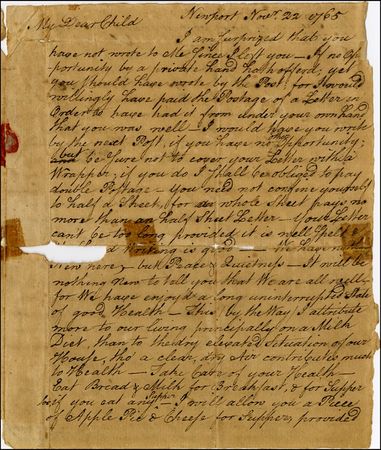 Newport Novr. 22 1765
My Dear Child
I am surprized that you
have not wrote to me since I left you — If no Op
portunity by a private hand hath offered, yet
you should have wrote by the Post; for I would
willingly have paid the Postage of a Letter in
Order to have had it from under your own hand
that you was well — I would have you write
by the next Post, if you have no Opportunity;
but be sure not to cover your Letter with a
Wrapper; if you do I shall be obliged to pay
double Postage — You need not confine yourself
to half a Sheet, for a whole Sheet pays no
more than an half Sheet Letter — Your Letter
can't be too long provided it is well Spelt &
Writing is good — We have no
New here, but Peace & Quietness — It will be
nothing New to tell you that We are all well
for We have enjoyd a long uninterrupted State
of good Health — This, by the Way, I attribute
more to our living principally on a Milk
Diet, than to the dry elevated Situation of our
House, tho' a clear, dry Air contributes much
to Health — Take Care of your Health —
Eat Bread & Milk for Breakfast, & for Supper
if you eat any Supper — I will allow you a Piece
of Apple Pie & Cheese for Supper, provided